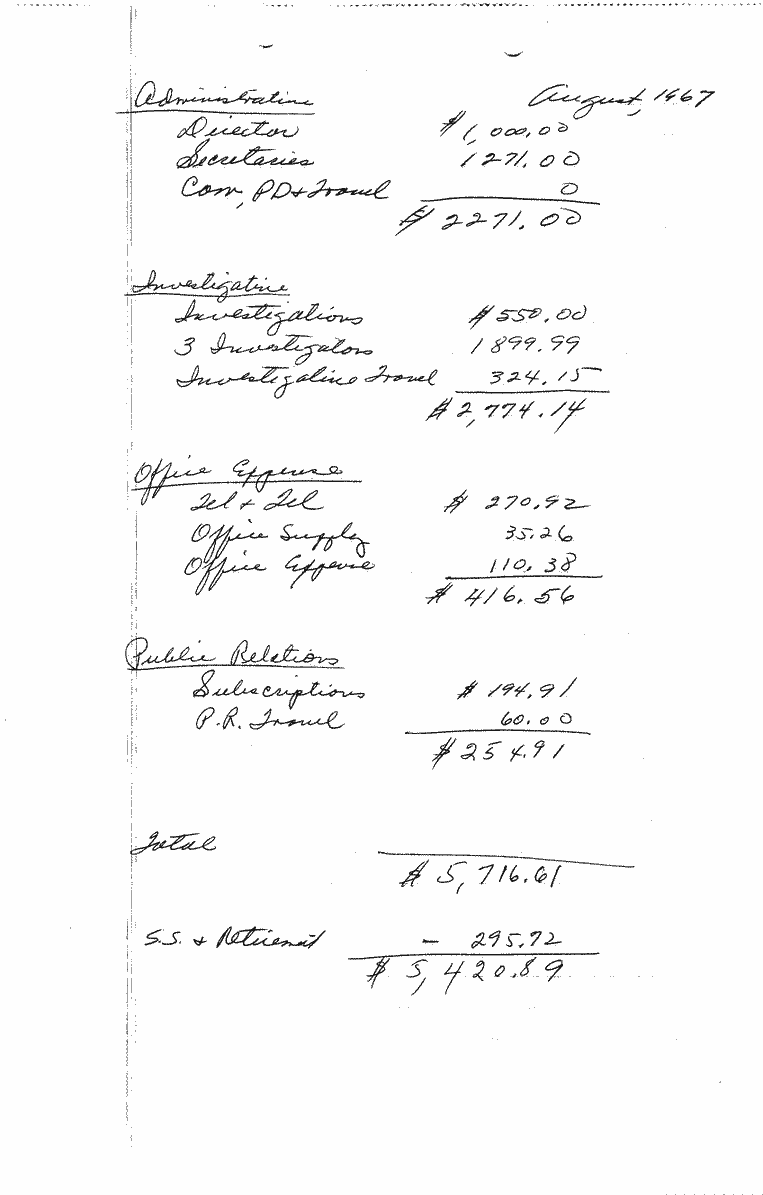 Administrative August, 1967
Director $1,000.00
Secretaries 1271.00
Com, PD + Travel 0
$2271.00
Investigative
Investigations $550.00
3 Investigators 1899.99
Investigative Travel 324.15
$2,774.14
Office Expense
Tel + Tel $270.92
Office Supply 35.26
Office Expense 110.38
$416.56
Public Relations
Subscriptions $194.91
P.R. Travel 60.00
$254.91
Total
$5,716.61
S.S. + Retirement - 295.72
$5,420.89